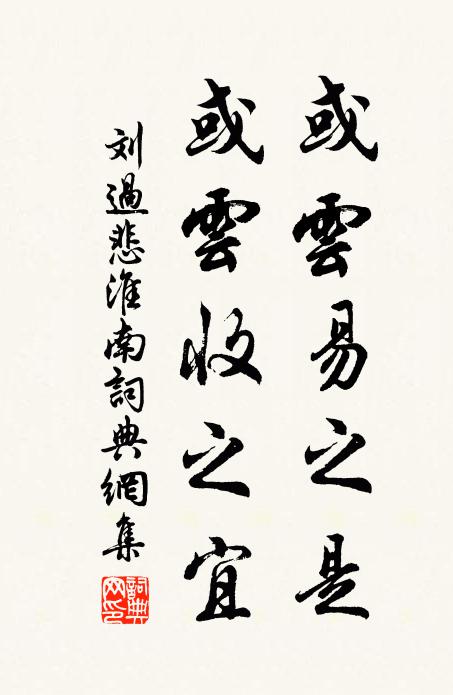 或雲易之是
或雲收之宜
刘過悲淮南詞典網集
詞典網印